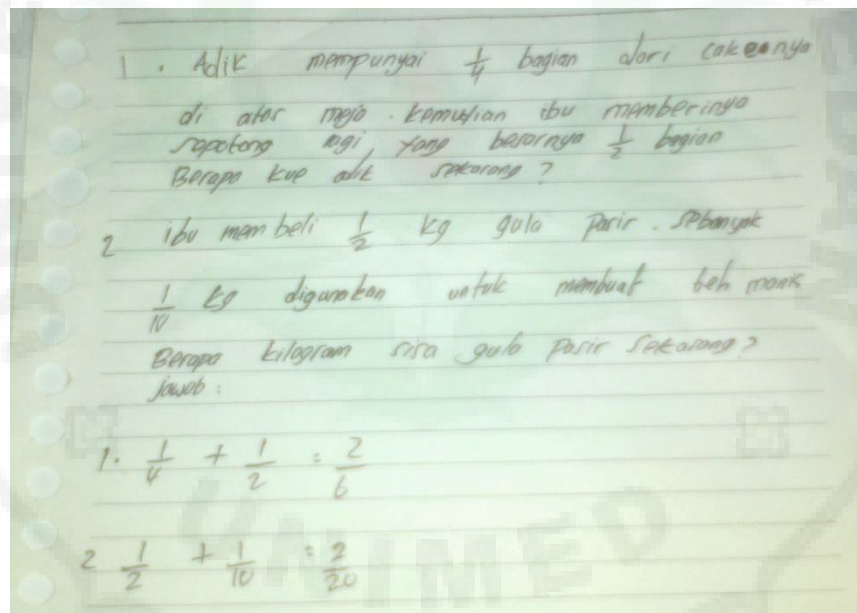 1. Adik mempunyai 1/4 bagian dari cakenya
di atas meja. kemudian ibu memberinya
sepotong lagi, yang besarnya 1/2 bagian
Berapa kue adik sekarang?
2 ibu membeli 1/2 kg gula pasir. sebanyak
1/10 kg digunakan untuk membuat teh manis
Berapa kilogram sisa gula pasir sekarang?
jawab:
1. 1/4 + 1/2 = 2/6
2 1/2 + 1/10 = 2/20
UNIMED